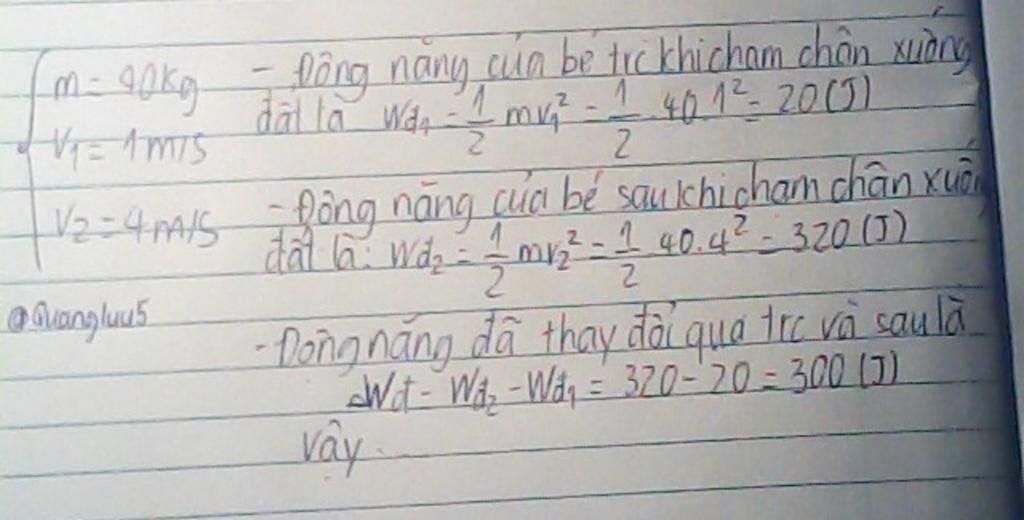 m = 40kg
V₁ = 1m/s
V₂ = 4m/s
@Quangluu5
- Động năng của bé trc khi chạm chân xuống
đất là Wđ₁ = 1/2 mv₁² = 1/2 . 40.1² = 20 (J)
- Động năng của bé sau khi chạm chân xuốn
đất là: Wđ₂ = 1/2 mv₂² = 1/2 40.4² = 320 (J)
- Động năng đã thay đổi qua trc và sau là
△Wđ = Wđ₂ - Wđ₁ = 320 - 20 = 300 (J)
Vậy.